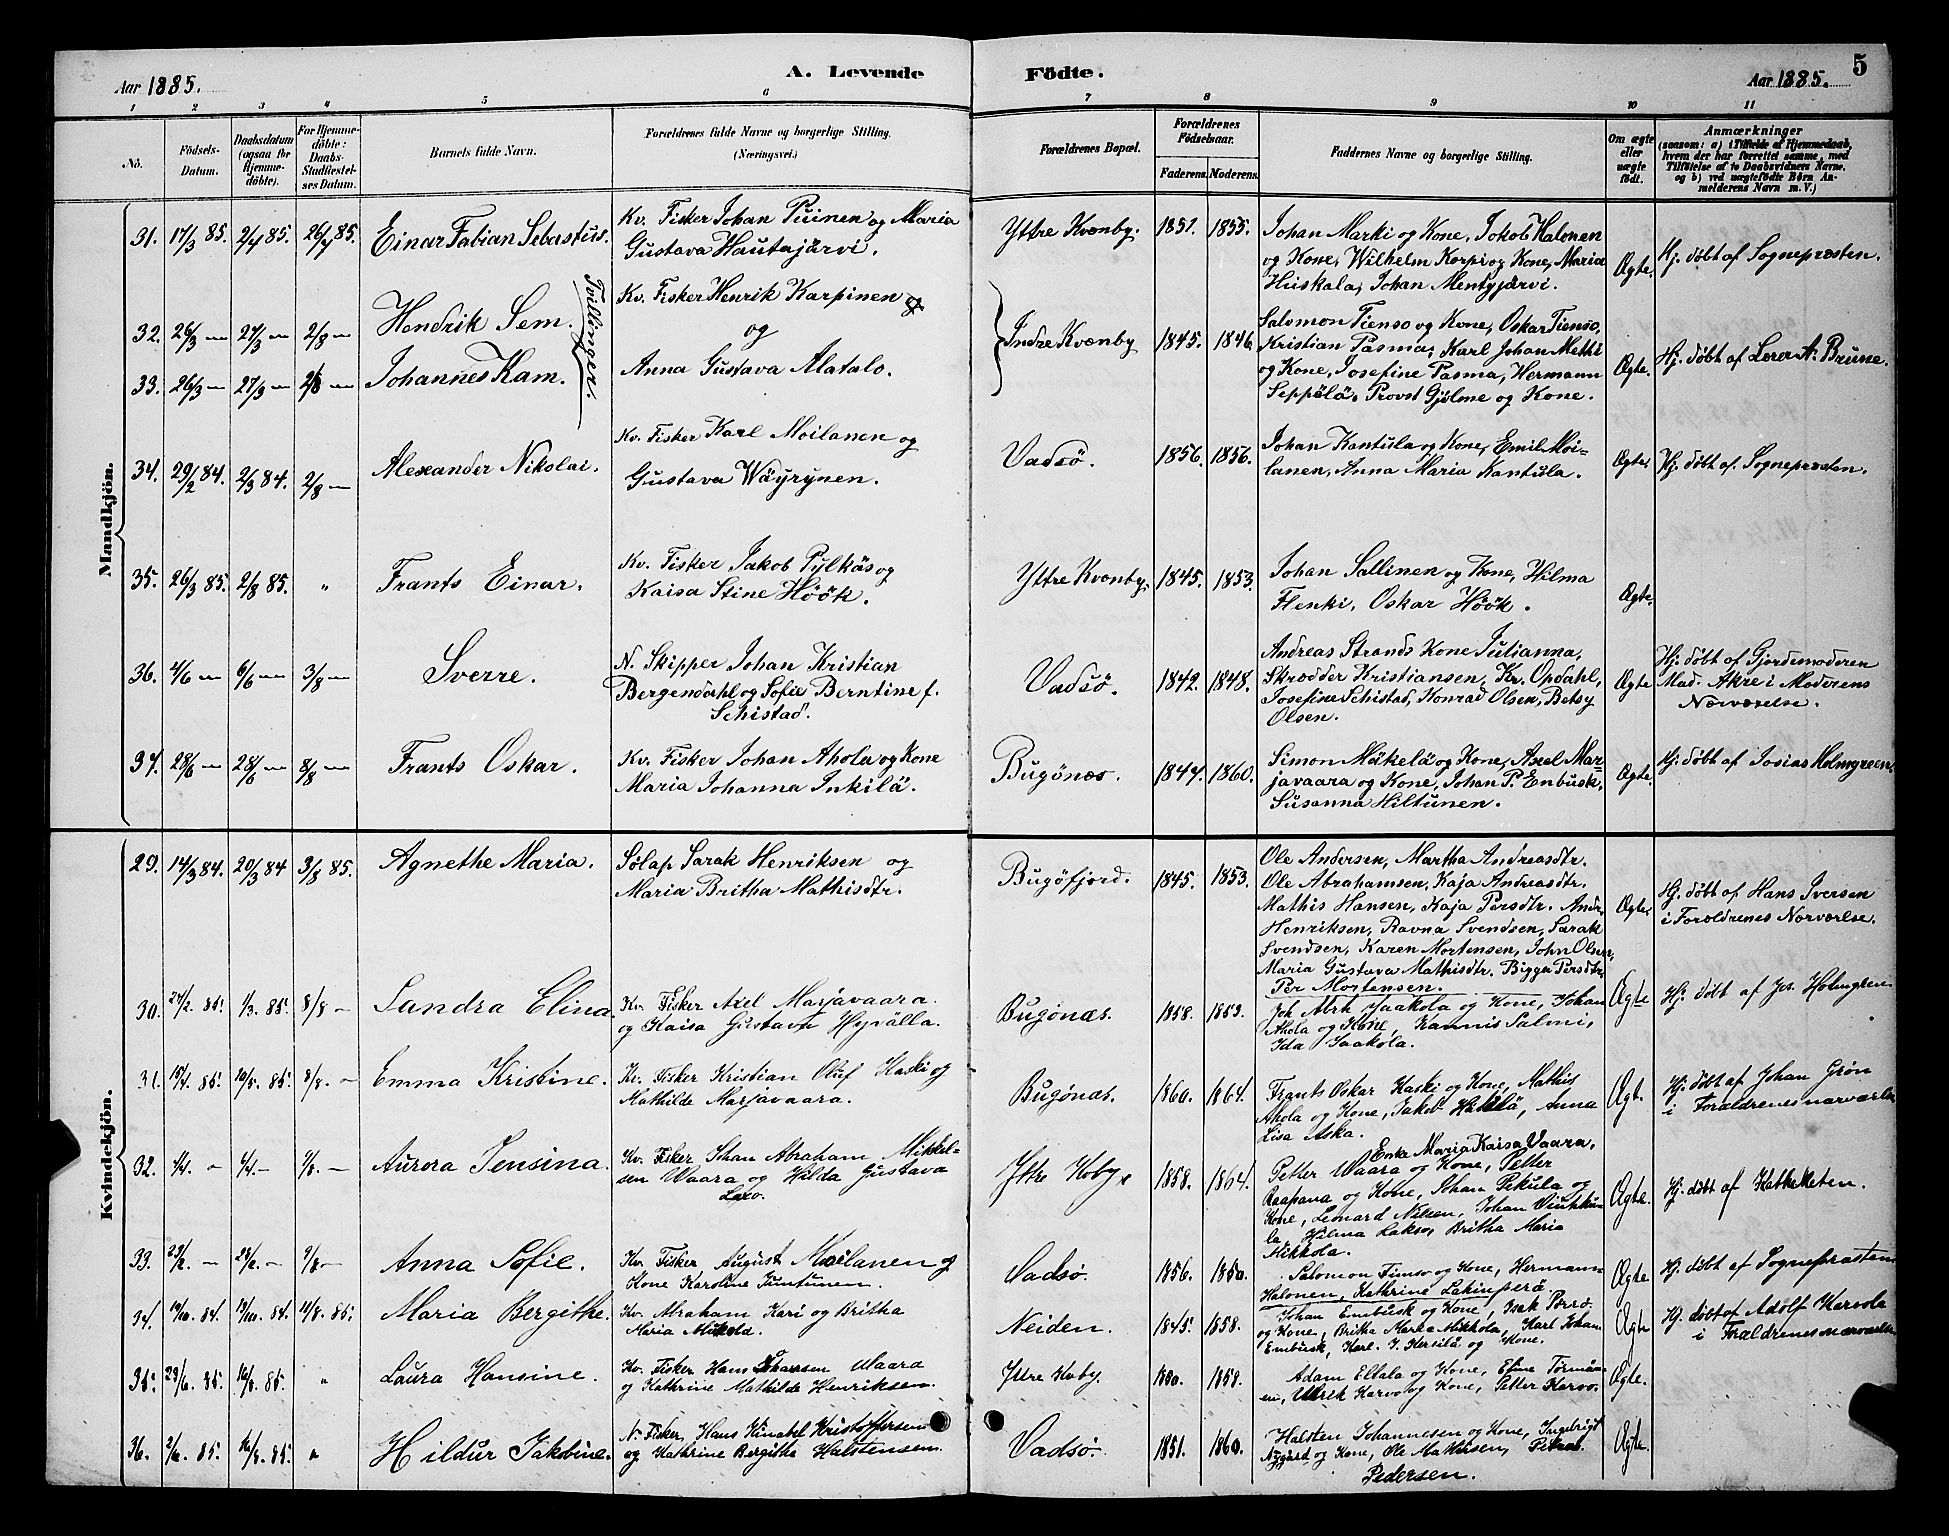 Aar 1885.
A. Levende Födte.
Aar 1885.
5
1 2 3 4 5 6 7 8 9 10 11
No.
Födsels-Datum.
Daabsdatum (ogsaa for Hjemme-döbte).
For Hjemme-döbte: Daabs-Stadfæstel-ses Datum.
Barnets fulde Navn.
Forældrenes fulde Navne og borgerlige Stilling.
(Næringsvei.)
Forældrenes Bopæl.
Forældrenes Födselsaar.
Faderens. Moderens.
Faddernes Navne og borgerlige Stilling.
Om ægte eller uægte födt.
Anmærkninger
(saasom: a) i Tilfælde af Hjemmedaab, hvem der har forrettet samme, med Tilföielse af to Daabsvidners Navne, og b) ved uægtefödte Börn Anmelderens Navn m. V.)
Mandkjön.
31. 17/3 85. 2/4 85. 26/4 85. Einar Fabian Sebastus.
Kv. Fisker Johan Puinen og Maria
Gustava Hautajärvi.
Yttre Kvænby. 1851. 1855.
Johan Marki og Kone, Jokob Halonen
og Kone, Wilhelm Korpi og Kone, Maria
Huskala, Johan Mentyjärvi.
Ægte. Hj. döbt af Sognepræsten.
32. 26/3 — 27/3 — 2/8 — Hendrik Sem.
33. 26/3 — 27/3 — 2/8 — Johannes Kam.
Tvillinger.
Kv. Fisker Henrik Karpinen og
og
Anna Gustava Alatalo.
Indre Kvænby 1845. 1846.
Salomon Tienso og Kone, Oskar Tienso,
Kristian Pasma, Karl Johan Methi
og Kone, Josefine Pasma, Hermann
Seppälä, Provst Gjölme og Kone.
Ægte. Hj. döbt af Lærer A. Brune.
34. 29/2 84. 2/3 84. 2/8 — Alexander Nikolai.
Kv. Fisker Karl Moilanen og
Gustava Wäyrynen.
Vadsö. 1856. 1856.
Johan Kantula og Kone, Emil Moi-
lanen, Anna Maria Kantula.
Ægte. Hj. döbt af Sognepræsten.
35. 26/3 85. 2/8 85. „ Frants Einar.
Kv. Fisker Jakob Pylkäs og
Kaisa Stine Höök.
Yttre Kvænby. 1845. 1853.
Johan Sallinen og Kone, Hilma
Flenki, Oskar Höök.
Ægte.
36. 4/6 — 6/6 — 3/8 — Sverre.
N. Skipper Johan Kristian
Bergendahl og Sofie Berntine f.
Schistad.
Vadsö. 1842. 1848.
Andreas Strands Kone Julianna,
Skrædder Kristiansen, Kr. Opdahl,
Josefine Schistad, Konrad Olsen, Betsy
Olsen.
Ægte Hj. döbt af Gjordemoderen
Mad. Akre i Moderens
Nærværelse.
37. 28/6 — 28/6 — 8/8 — Frants Oskar.
Kv. Fisker Johan Ahola og Kone
Maria Johanna Inkilä.
Bugönæs. 1847. 1860.
Simon Mäkelä og Kone, Axel Mar-
javaara og Kone, Johan P. Enbusk,
Susanna Hiltunen.
Ægte. Hj. döbt af Josias Holmgreen.
Kvindekjön.
29. 14/3 84. 20/3 84 3/8 85. Agnethe Maria.
Sölap Sarak Henriksen og
Maria Britha Mathisdtr.
Bugöfjord. 1845. 1853.
Ole Andersen, Martha Andreasdtr.
Ole Abrahamsen, Kaja Andreasdtr.
Mathis Hansen, Kaja Persdtr. Andr.
Henriksen, Ravna Svendsen, Sarak
Svendsen, Karen Mortensen, John Olsen,
Maria Gustava Mathisdtr. Bigga Persdtr.
Per Mortensen.
Ægte. Hj. döbt af Hans Iversen
i Forældrenes Nærværelse.
30. 27/2. 85. 1/3. 85. 8/8 — Sandra Elina
Kv. Fisker Axel Marjavaara
og Kaisa Gustava Hyvälla.
Bugönæs. 1858. 1853.
Joh Abrh Jaakola og Kone, Johan
Ahola og Kone, Hannis Salmi,
Ida Jaakola.
Ægte Hj. døbt af Jos. Holmgren
31. 15/4. 85. 10/5. 85. 8/8. — Emma Kristine.
Kv. Fisker Kristian Oluf Haski og
Mathilde Marjavaara.
Bugønæs. 1860. 1864.
Frants Oskar Haski og Kone, Mathis
Ahola og Kone, Jakob Hakelä, Anna
Lisa Aska.
Ægt. Hj. døbt af Johan Grön
i Forældrenes nærværelse
32. 1/4. — 4/4. — 9/8. — Aurora Jensina.
Kv. Fisker Johan Abraham Mikkel-
sen Waara og Hilda Gustava
Laxo.
Ytre Kvby. 1858. 1864.
Enke Maria Kaisa Vaara,
Petter Waara og Kone, Petter
Raapana og Kone, Johan Pekula og
Kone, Leonard Nilsen, Johan Viuhku-
la, Hilma Lakso, Britha Maria
Mikkola.
Ægte. Hj. døbt af Katheketen.
33. Anna Sofie.
Kv. Fisker August Moilanen og
Kone Karoline Juntunen.
Vadsø. 1856. 1850.
Salomon Timso og Kone, Hermann
Halonen, Kathrine Lakinperä.
Ægte Hj. døbt af Sognepræsten
34. 19/10. 84. 19/10. 84. 14/8. 85. Maria Bergithe.
Kv. Abraham Kari og Britha
Maria Mikola.
Neiden. 1845. 1858.
Johan Embusk og Kone, Isak Porro
og Kone, Britha Marka Mikkola, Karl Johan
Embusk, Karl. J. Kersilä og Kone.
Ægte Hj. døbt af Adolf Kervola
i Forældrenes nærværelse
35. 23/6. 85. 16/8. 85. „ Laura Hansine.
Kv. Fisker Hans Johansen Waara
og Kathrine Mathilde Henriksen.
Ytre Kvby. 1850. 1858.
Adam Eltala og Kone, Eline Törmän-
en, Ulrik Karvo og Kone, Petter Karvo.
Ægte.
36. 2/6. 85. 16/8. 85. „ Hildur Jakobine.
N. Fisker, Hans Kinabel Kristoffersen
og Kathrine Bergithe Halstensen.
Vadsø. 1851. 1860.
Halsten Johannesen og Kone, Ingebrigt
Nygård og Kone, Ole Mathisen, Petra
Pedersen.
Ægte.